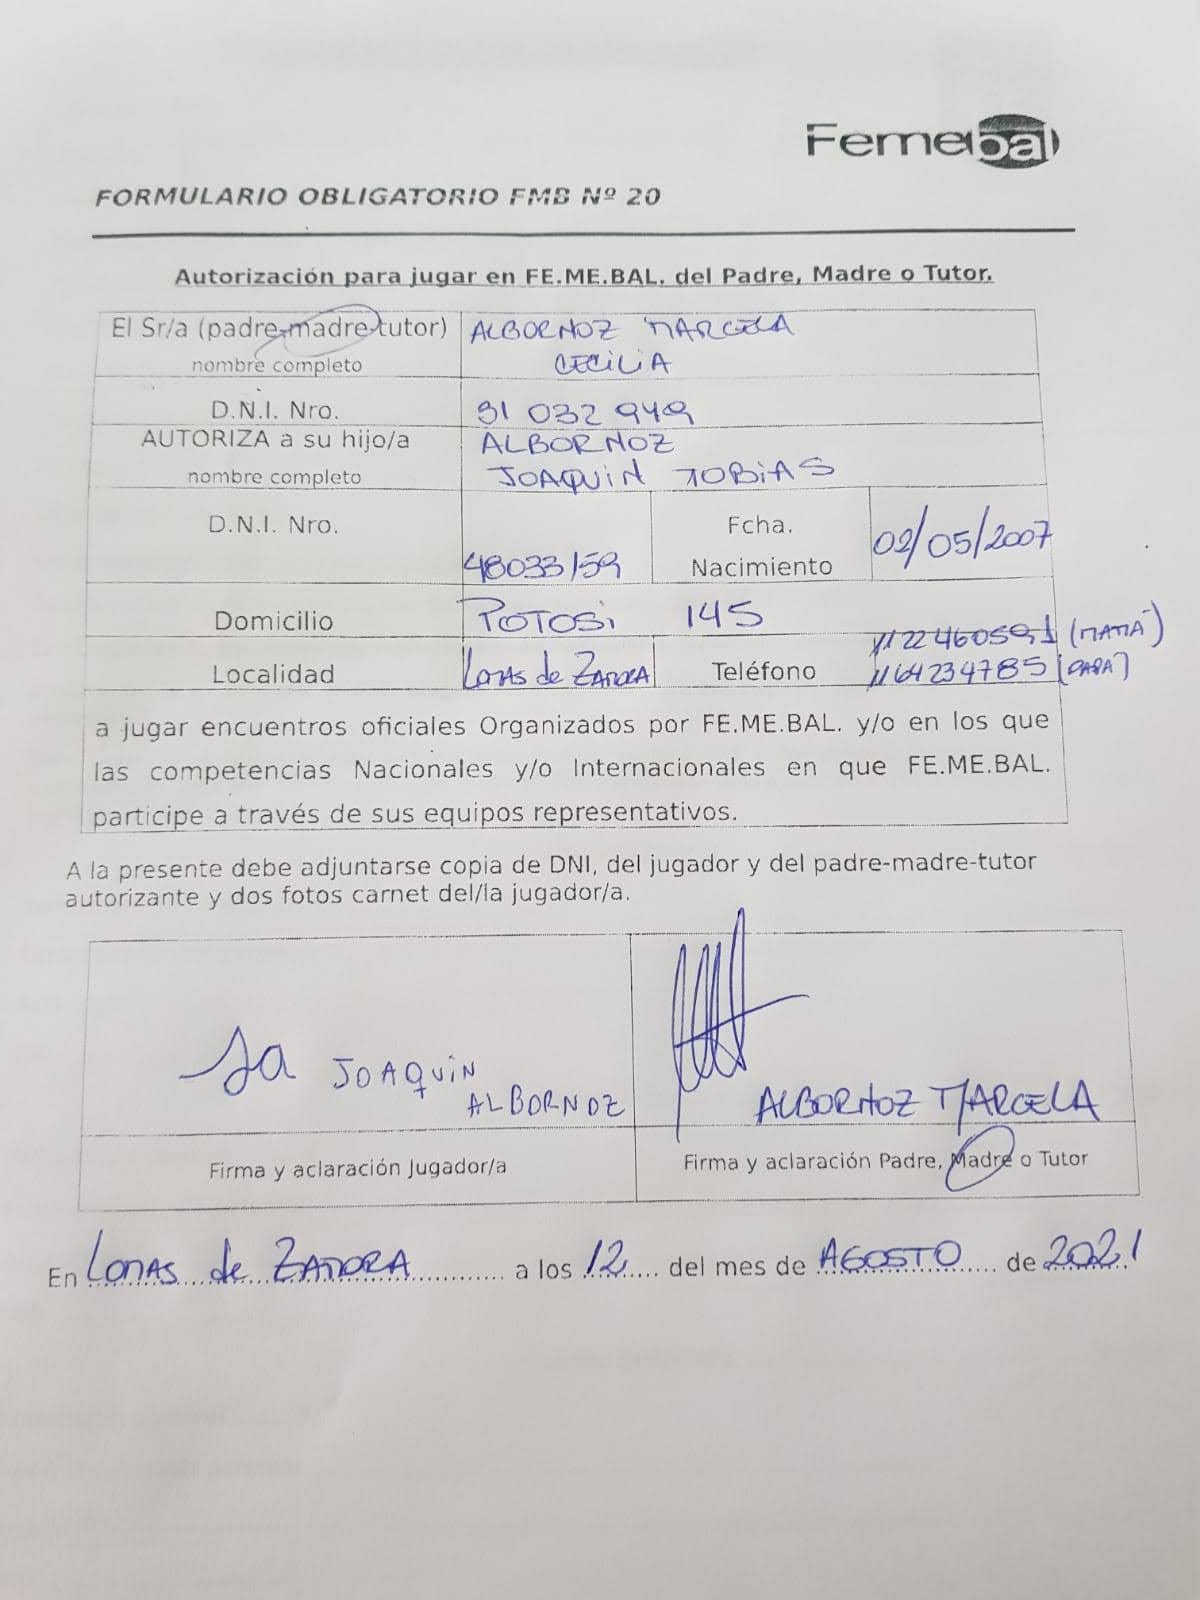 Femebal
FORMULARIO OBLIGATORIO FMB Nº 20
Autorización para jugar en FE.ME.BAL. del Padre, Madre o Tutor.
El Sr/a (padre-madre-tutor) ALBORNOZ MARCELA
nombre completo CECILIA
D.N.I. Nro. 31 032 949
AUTORIZA a su hijo/a ALBORNOZ
nombre completo JOAQUIN TOBIAS
D.N.I. Nro. 48033159 Fcha. Nacimiento 02/05/2007
Domicilio POTOSI 145
Localidad Lomas de ZAMORA Teléfono 1122460591 (MAMA)
1164234785 (PAPA)
a jugar encuentros oficiales Organizados por FE.ME.BAL. y/o en los que
las competencias Nacionales y/o Internacionales en que FE.ME.BAL.
participe a través de sus equipos representativos.
A la presente debe adjuntarse copia de DNI, del jugador y del padre-madre-tutor
autorizante y dos fotos carnet del/la jugador/a.
JOAQUIN
ALBORNOZ
ALBORNOZ MARCELA
Firma y aclaración Jugador/a
Firma y aclaración Padre, Madre o Tutor
En Lomas de ZAMORA a los 12 del mes de AGOSTO de 2021